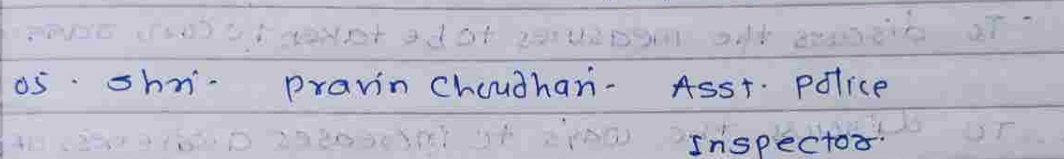 05. Shri. Pravin Choudhari - Asst. Police
Inspector.